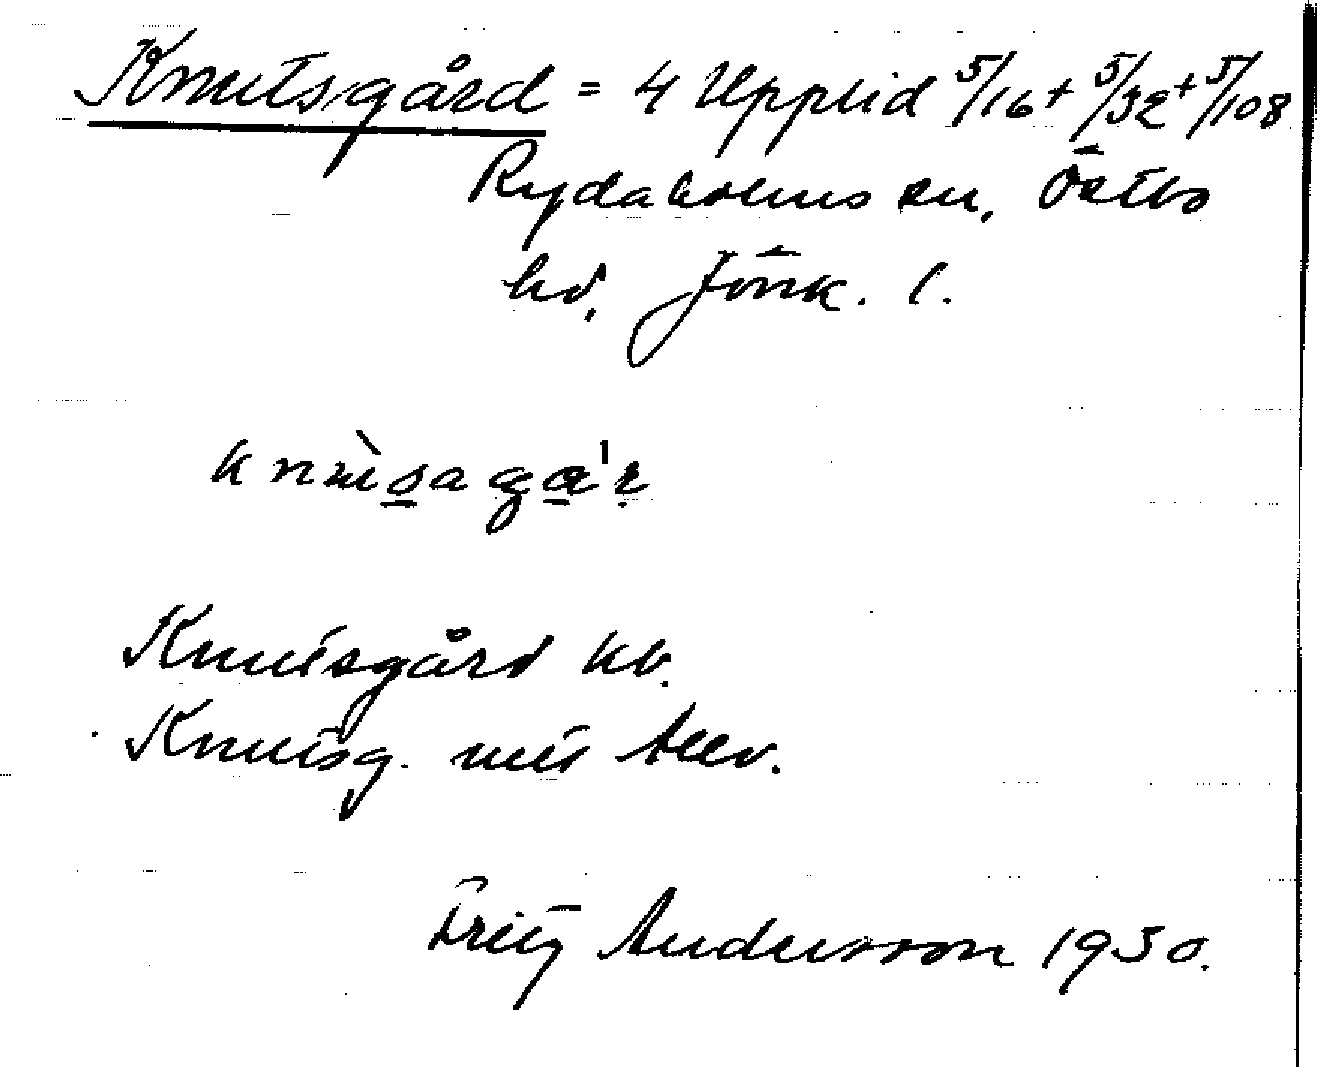 Knutsgård = 4 Upplid 5/16 + 5/32 + 5/108
Rydaholms sn, Östbo
hd, Jönk. l.
knu̇̀sagɑ'r
Knutsgård kb.
Knutsg.
Fritz Andersson 1930.